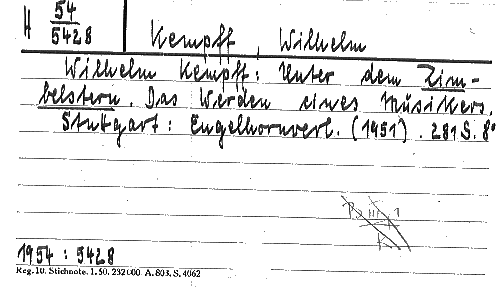 H 54
5428
Kempff, Wilhelm
Wilhelm Kempff: Unter dem Zim-
belstern. Das Werden eines Musikers.
Stuttgart: Engelhornverl. (1951). 281 S. 8°
1954 : 5428
Reg. 10. Stichnote. 1. 50. 232 000 A. 803. S. 4062